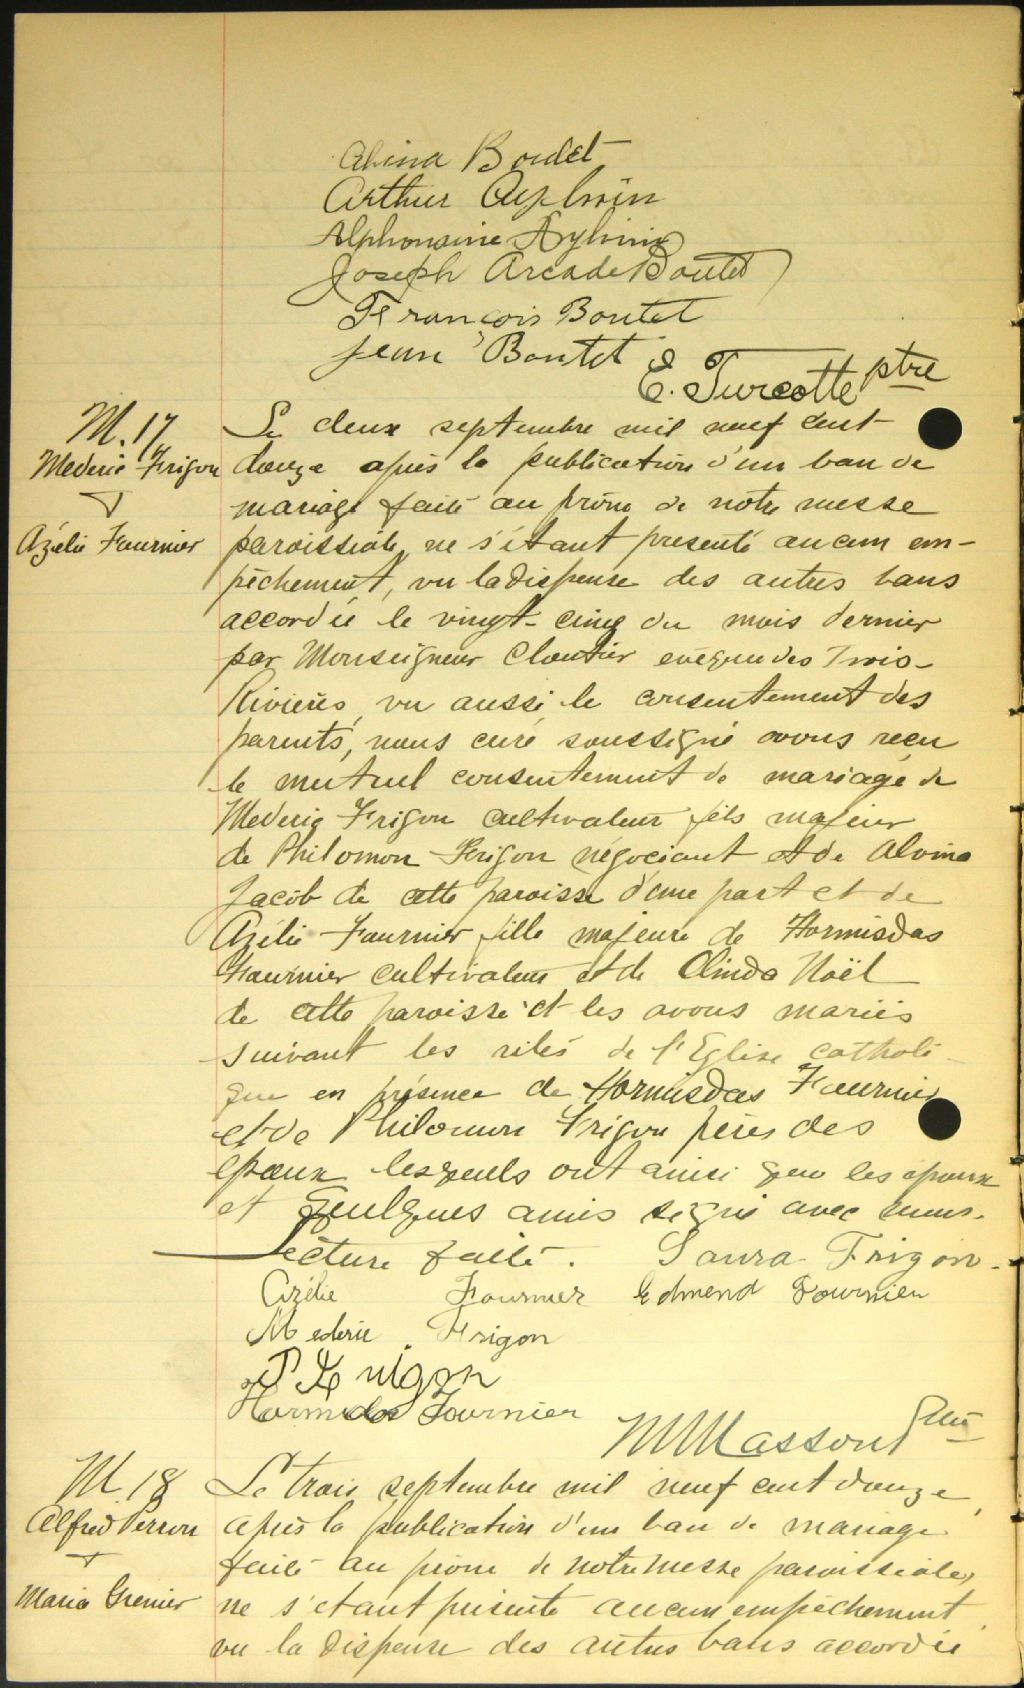 Alvina Boudet
Arthur Aylwin
Alphonsine Aylwin
Joseph Arcade Boutet
François Boutet
Jean Boutet
E. Turcotte ptre
M. 17
Mederic Frigon
&
Azélie Fournier
Le deux septembre mil neuf cent
douze après la publication d'un ban de
mariage faite au prône de notre messe
paroissiale, ne s'étant presenté aucun em-
pêchement, vu la dispense des autres bans
accordée le vingt-cinq du mois dernier
par Monseigneur Cloutier evêque des Trois-
Rivières, vu aussi le consentement des
parents, nous curé soussigné avons recu
le mutuel consentement de mariage de
Mederic Frigon cultivateur fils majeur
de Philomon Frigon négociant et de Alvina
Jacob de cette paroisse d'une part et de
Azélie Fournier fille majeure de Hormisdas
Fournier cultivateur et de Olinda Noël
de cette paroisse et les avons mariés
suivant les rites de l'Eglise catholi-
que en présence de Hormisdas Fournier
et de Philomon Frigon pères des
époux lesquels ont ainsi que les époux
et quelques amis signé avec nous.
Lecture faite. Laura Frigon.
Azélie Fournier Edmond Fournier
Mederic Frigon
P Frigon
Hormisdas Fournier
Masson Ptre
M. 18
Alfred Perron
&
Maria Grenier
Le trois septembre mil neuf cent douze
après la publication d'un ban de mariage
faite au prône de notre messe paroissiale,
ne s'étant présenté aucun empêchement
vu la dispense des autres bans accordée